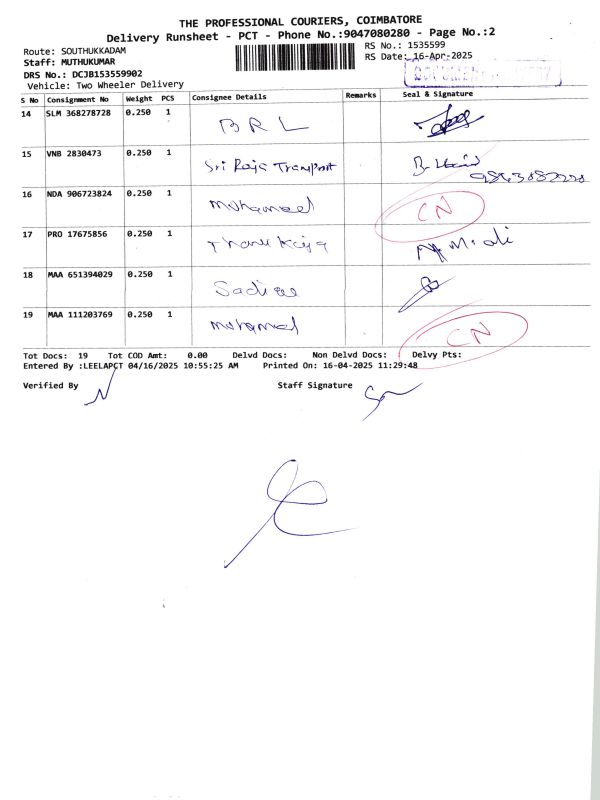 THE PROFESSIONAL COURIERS, COIMBATORE
Delivery Runsheet - PCT - Phone No.:9047080280 - Page No.:2
Route: SOUTHUKKADAM
RS No.: 1535599
Staff: MUTHUKUMAR
RS Date: 16-Apr-2025
DRS No.: DCJB153559902
Vehicle: Two Wheeler Delivery
S No Consignment No Weight PCS Consignee Details Remarks Seal & Signature
14 SLM 368278728 0.250 1 BRL
15 VNB 2830473 0.250 1 Sri Raja Transport
16 NDA 906723824 0.250 1 mohamed CN
17 PRO 17675856 0.250 1
18 MAA 651394029 0.250 1
19 MAA 111203769 0.250 1 mohamed CN
Tot Docs: 19 Tot COD Amt: 0.00 Delvd Docs: Non Delvd Docs: Delvy Pts:
Entered By :LEELAPCT 04/16/2025 10:55:25 AM Printed On: 16-04-2025 11:29:48
Verified By Staff Signature